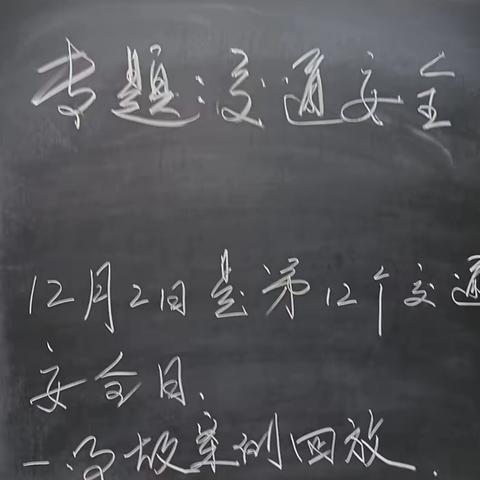 专题:交通安全
12月2日是第12个交通
安全日.
一.事故案例回放.